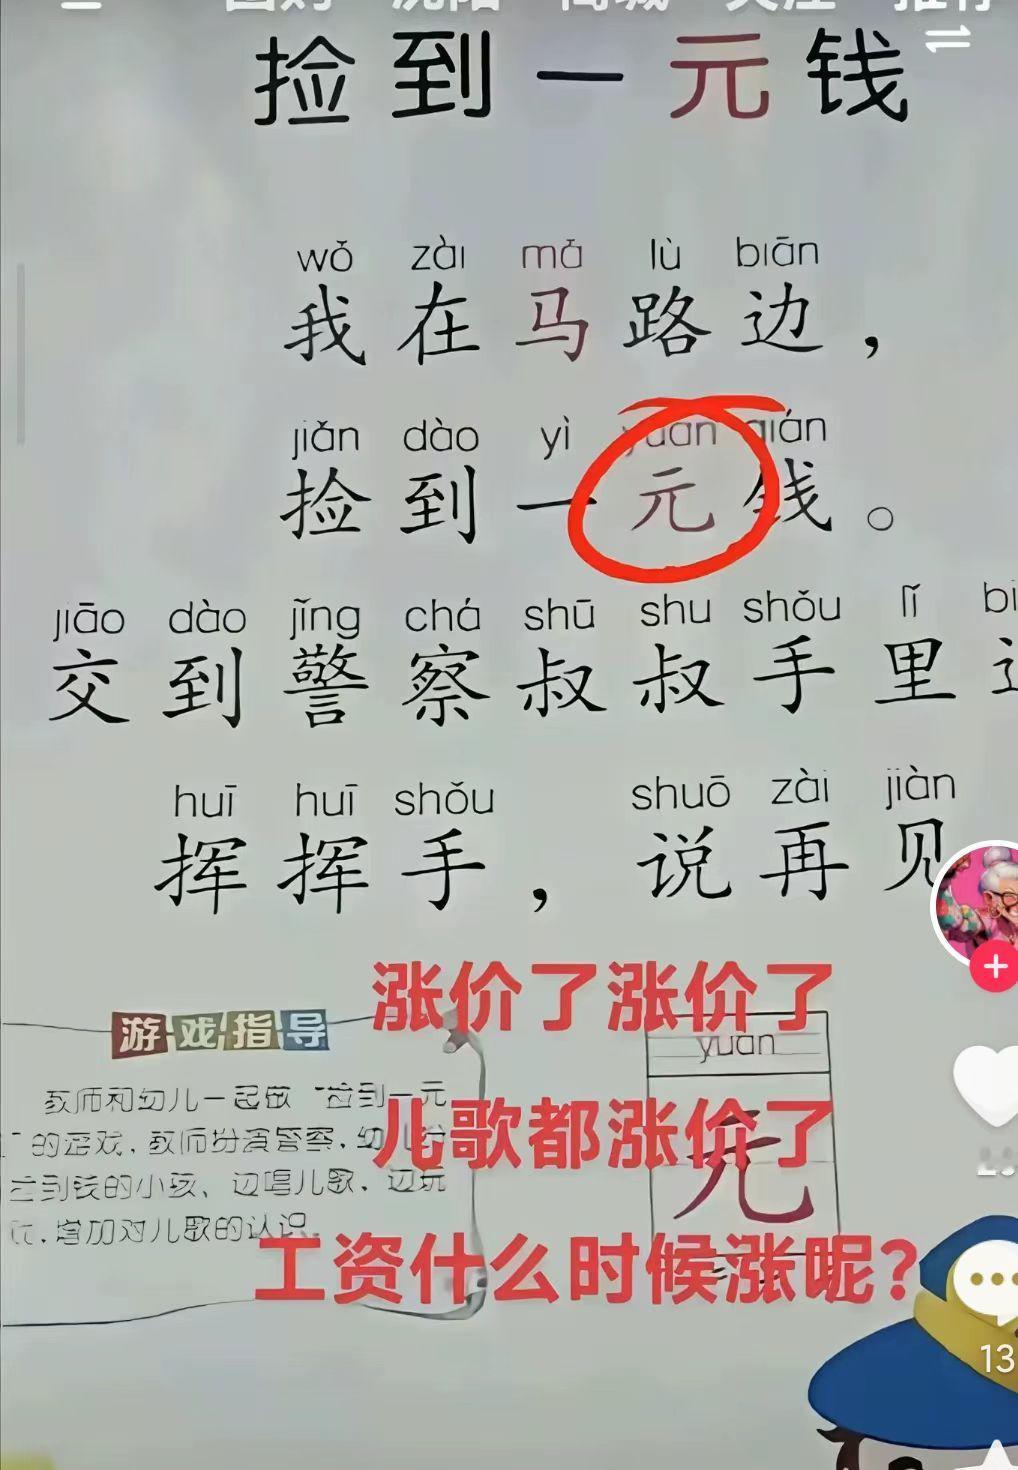 捡到一元钱
wǒ zài mǎ lù biān
我在马路边，
jiǎn dào yì yuán qián
捡到一元钱。
jiāo dào jǐng chá shū shu shǒu lǐ
交到警察叔叔手里
huī huī shǒu shuō zài jiàn
挥挥手，说再见
涨价了涨价了
游戏指导
yuán
教师和幼儿一起做“捡到一元
儿歌都涨价了
元
”的游戏，教师扮演警察，幼儿
捡到钱的小孩，边唱儿歌，边玩
增加对儿歌的认识。
工资什么时候涨呢？
13